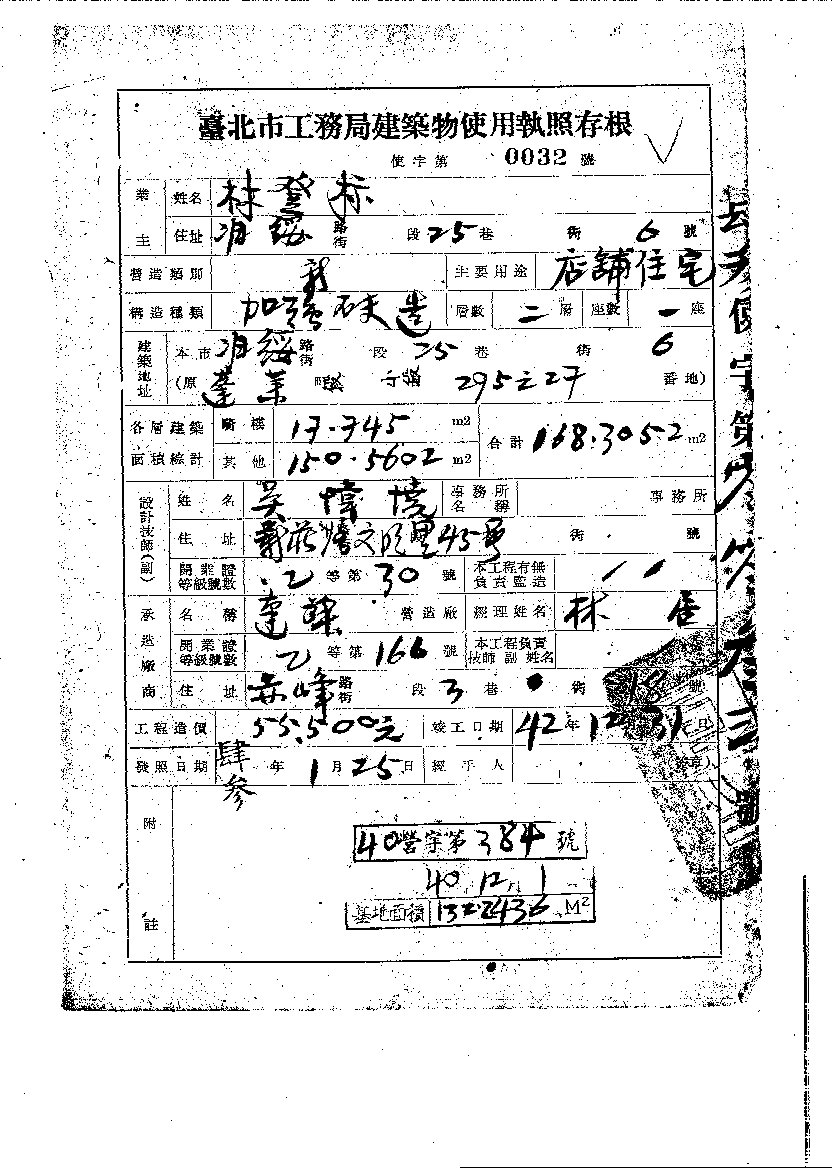 臺北市工務局建築物使用執照存根
使字第 0032 號
業主 姓名 林登标
住址 路街 段 25 巷 街 6 號
營造類別 新 主要用途 店舖住宅
構造種類 加強砖造 層數 二層 座數 一座
建築地址 本市 路街 段 25 巷 街 6
(原 蓬萊 295之27 番地)
各層建築面積總計 騎樓 17.745 m2 合計 168.3052 m2
其他 150.5602 m2
設計技師(副) 姓名 吳 事務所名稱 事務所
住址 45号 街 號
開業證等級號數 乙等第 30 號 本工程有無負責監造
承造廠商 名稱 營造廠 經理姓名 林
開業證等級號數 乙等第 166 號 本工程負責技師副姓名
住址 赤峰路街 段 3 巷 街 18 號
工程造價 55,500元 竣工日期 42年12 31日
發照日期 肆參年1月25日 經手人
附註
40營字第384號
40.12.1
基地面積 132.2436 M²
使字第 號